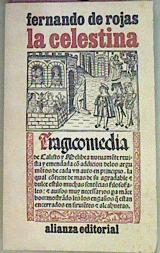 fernando de rojas
la celestina
Tragicomedia
de Calisto y Melibea nuevamẽte revi
sta y emendada cõ addicion delos argu
mẽtos de cada vn auto en principio. la
qual cõtiene de mas de su agradable &
dulce estilo muchas sentencias filosofa
les: & auisos muy necessarios pa mãce
bos mostrãdo les los engaños q̃ estã en
cerrados en seruiẽtes & alcahuetas.
alianza editorial